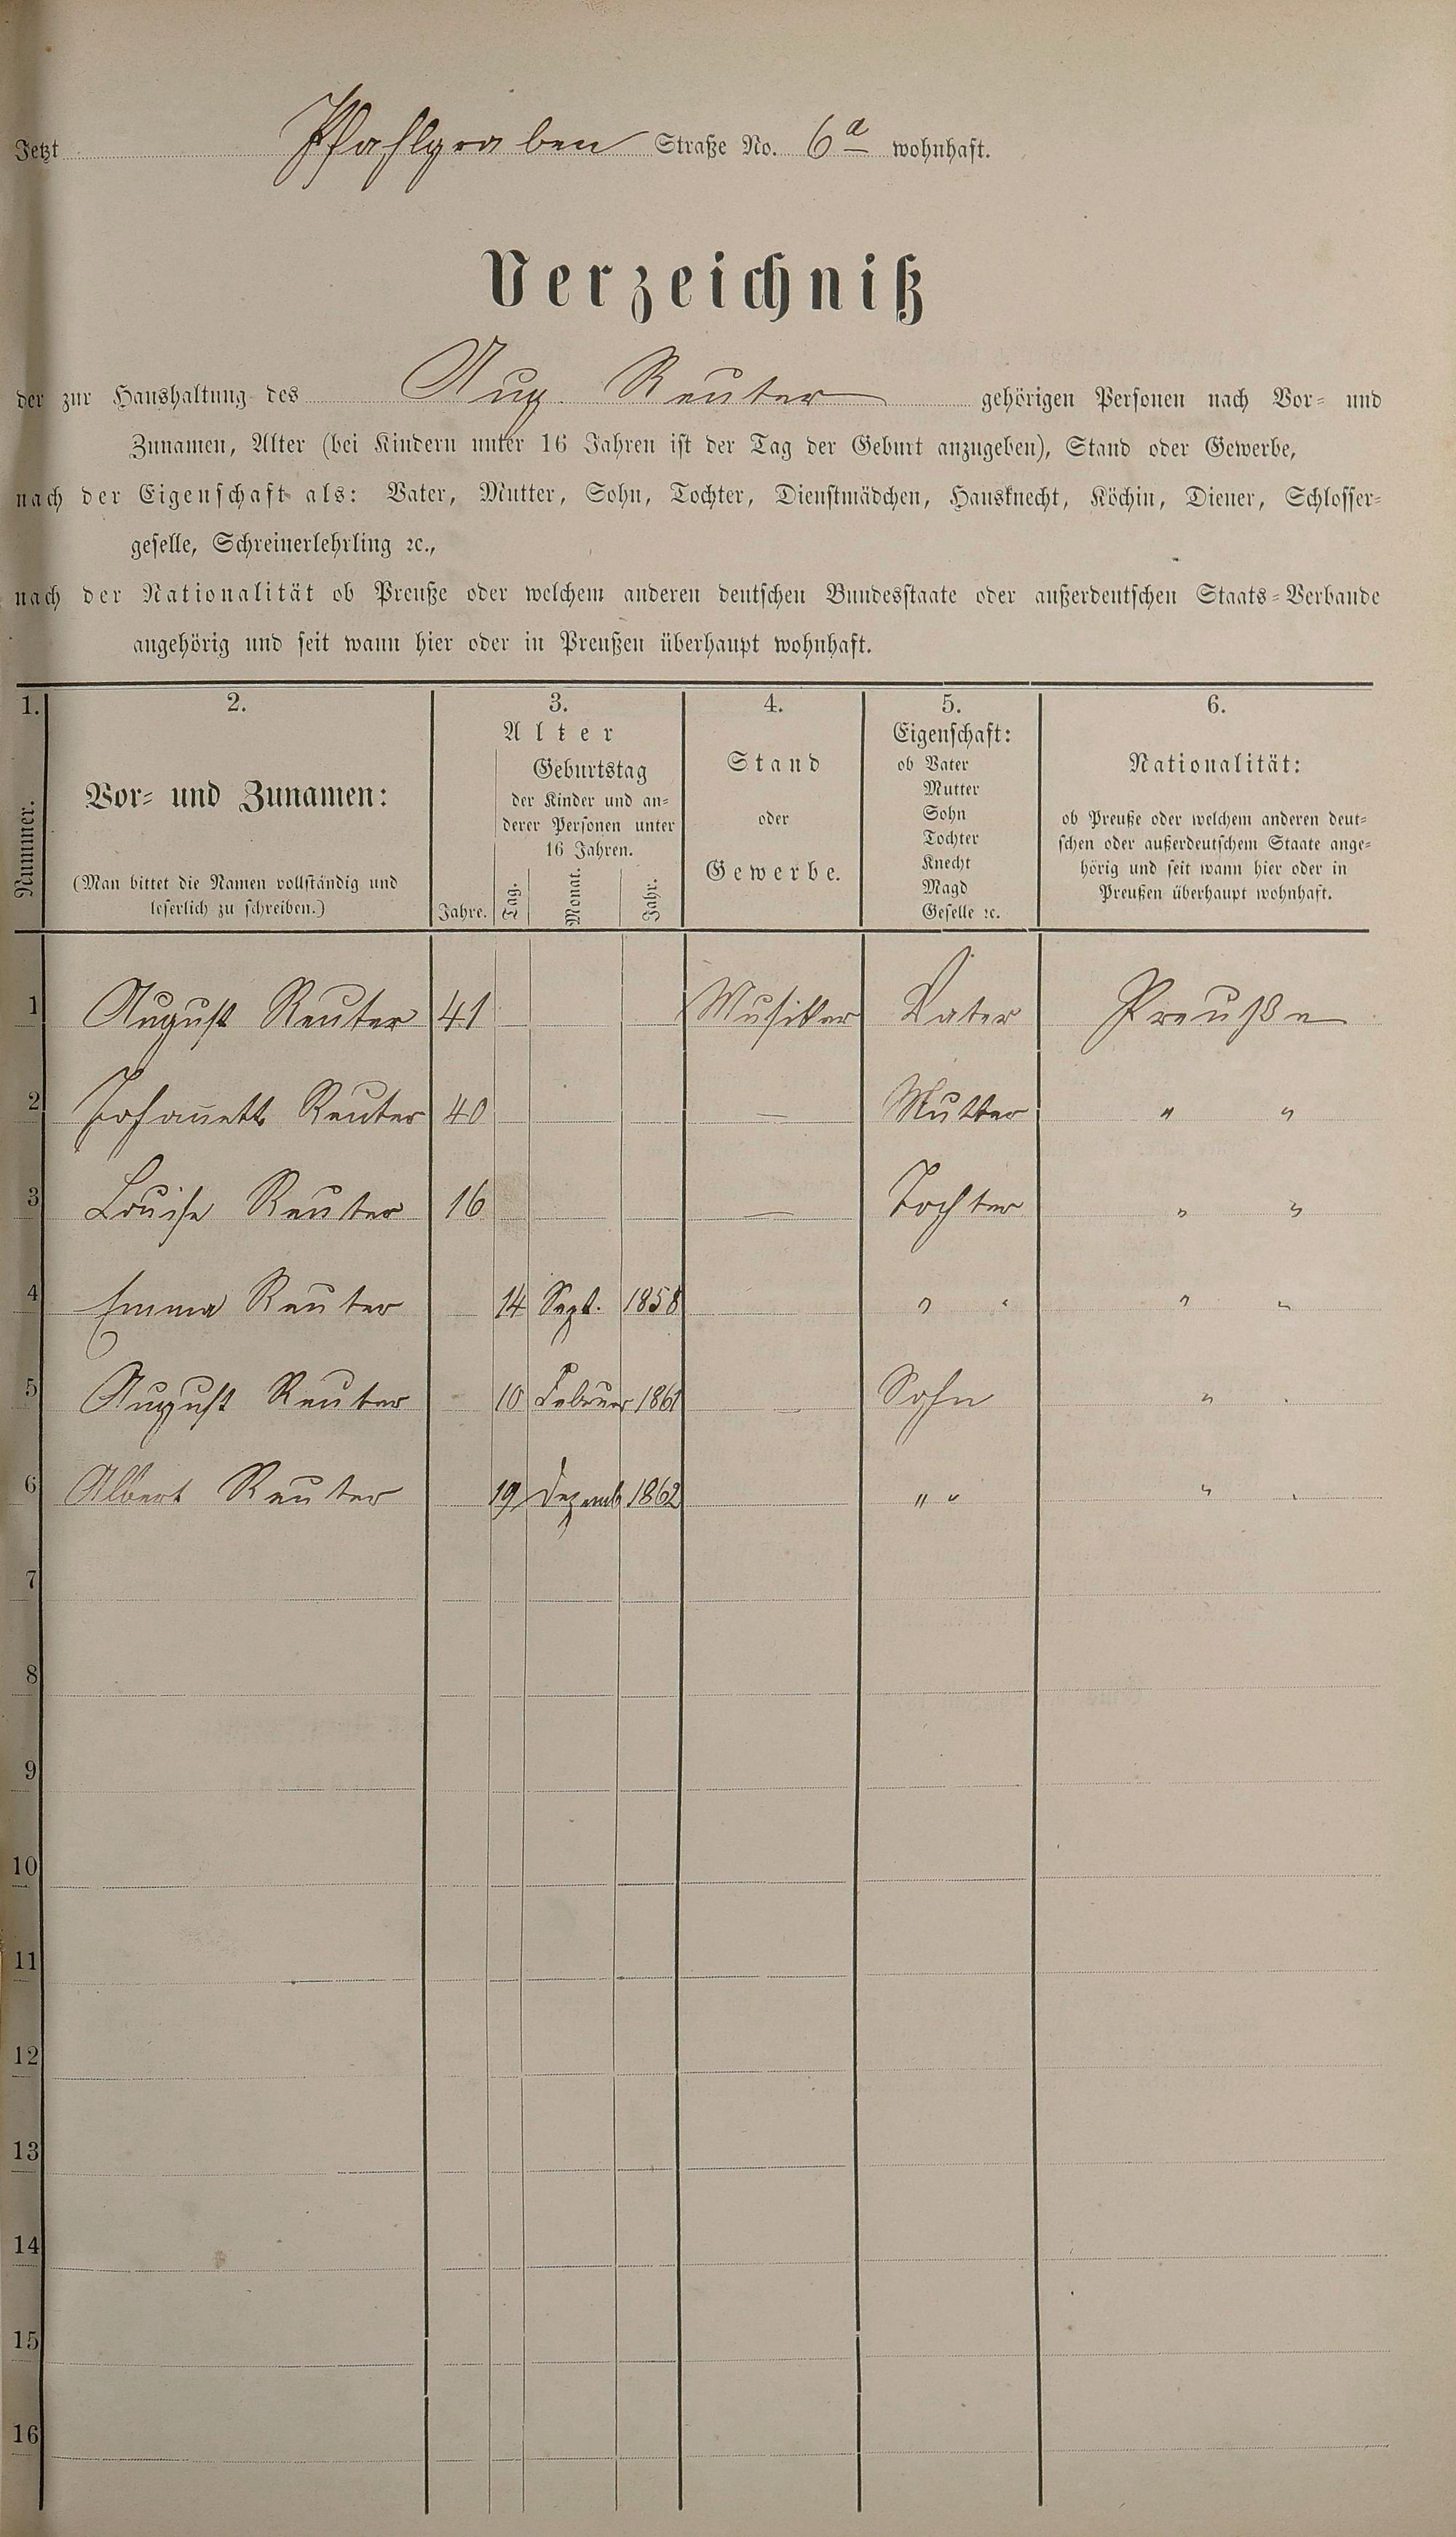 Jetzt Pfahlgraben Straße No. 6a wohnhaft.
Verzeichniß
der zur Haushaltung des Aug. Reuter gehörigen Personen nach Vor- und
Zunamen, Alter (bei Kindern unter 16 Jahren ist der Tag der Geburt anzugeben), Stand oder Gewerbe,
nach der Eigenschaft als: Vater, Mutter, Sohn, Tochter, Dienstmädchen, Hausknecht, Köchin, Diener, Schlosser-
geselle, Schreinerlehrling ꝛc.,
nach der Nationalität ob Preuße oder welchem anderen deutschen Bundesstaate oder außerdeutschen Staats-Verbande
angehörig und seit wann hier oder in Preußen überhaupt wohnhaft.
1.
Nummer.
2.
Vor- und Zunamen:
(Man bittet die Namen vollständig und
leserlich zu schreiben.)
3.
Alter
Jahre.
Geburtstag
der Kinder und an-
derer Personen unter
16 Jahren.
Tag. Monat. Jahr.
4.
Stand
oder
Gewerbe.
5.
Eigenschaft:
ob Vater
Mutter
Sohn
Tochter
Knecht
Magd
Geselle ꝛc.
6.
Nationalität:
ob Preuße oder welchem anderen deut-
schen oder außerdeutschem Staate ange-
hörig und seit wann hier oder in
Preußen überhaupt wohnhaft.
1 August Reuter 41 Musiker Vater Preuße
2 Johañett Reuter 40 — Mutter " "
3 Louise Reuter 16 — Tochter " "
4 Emma Reuter 14 Sept. 1858 " " " "
5 August Reuter 10 Februar 1861 — Sohn " "
6 Albert Reuter 19 Dezemb 1862 " " " "
7
8
9
10
11
12
13
14
15
16